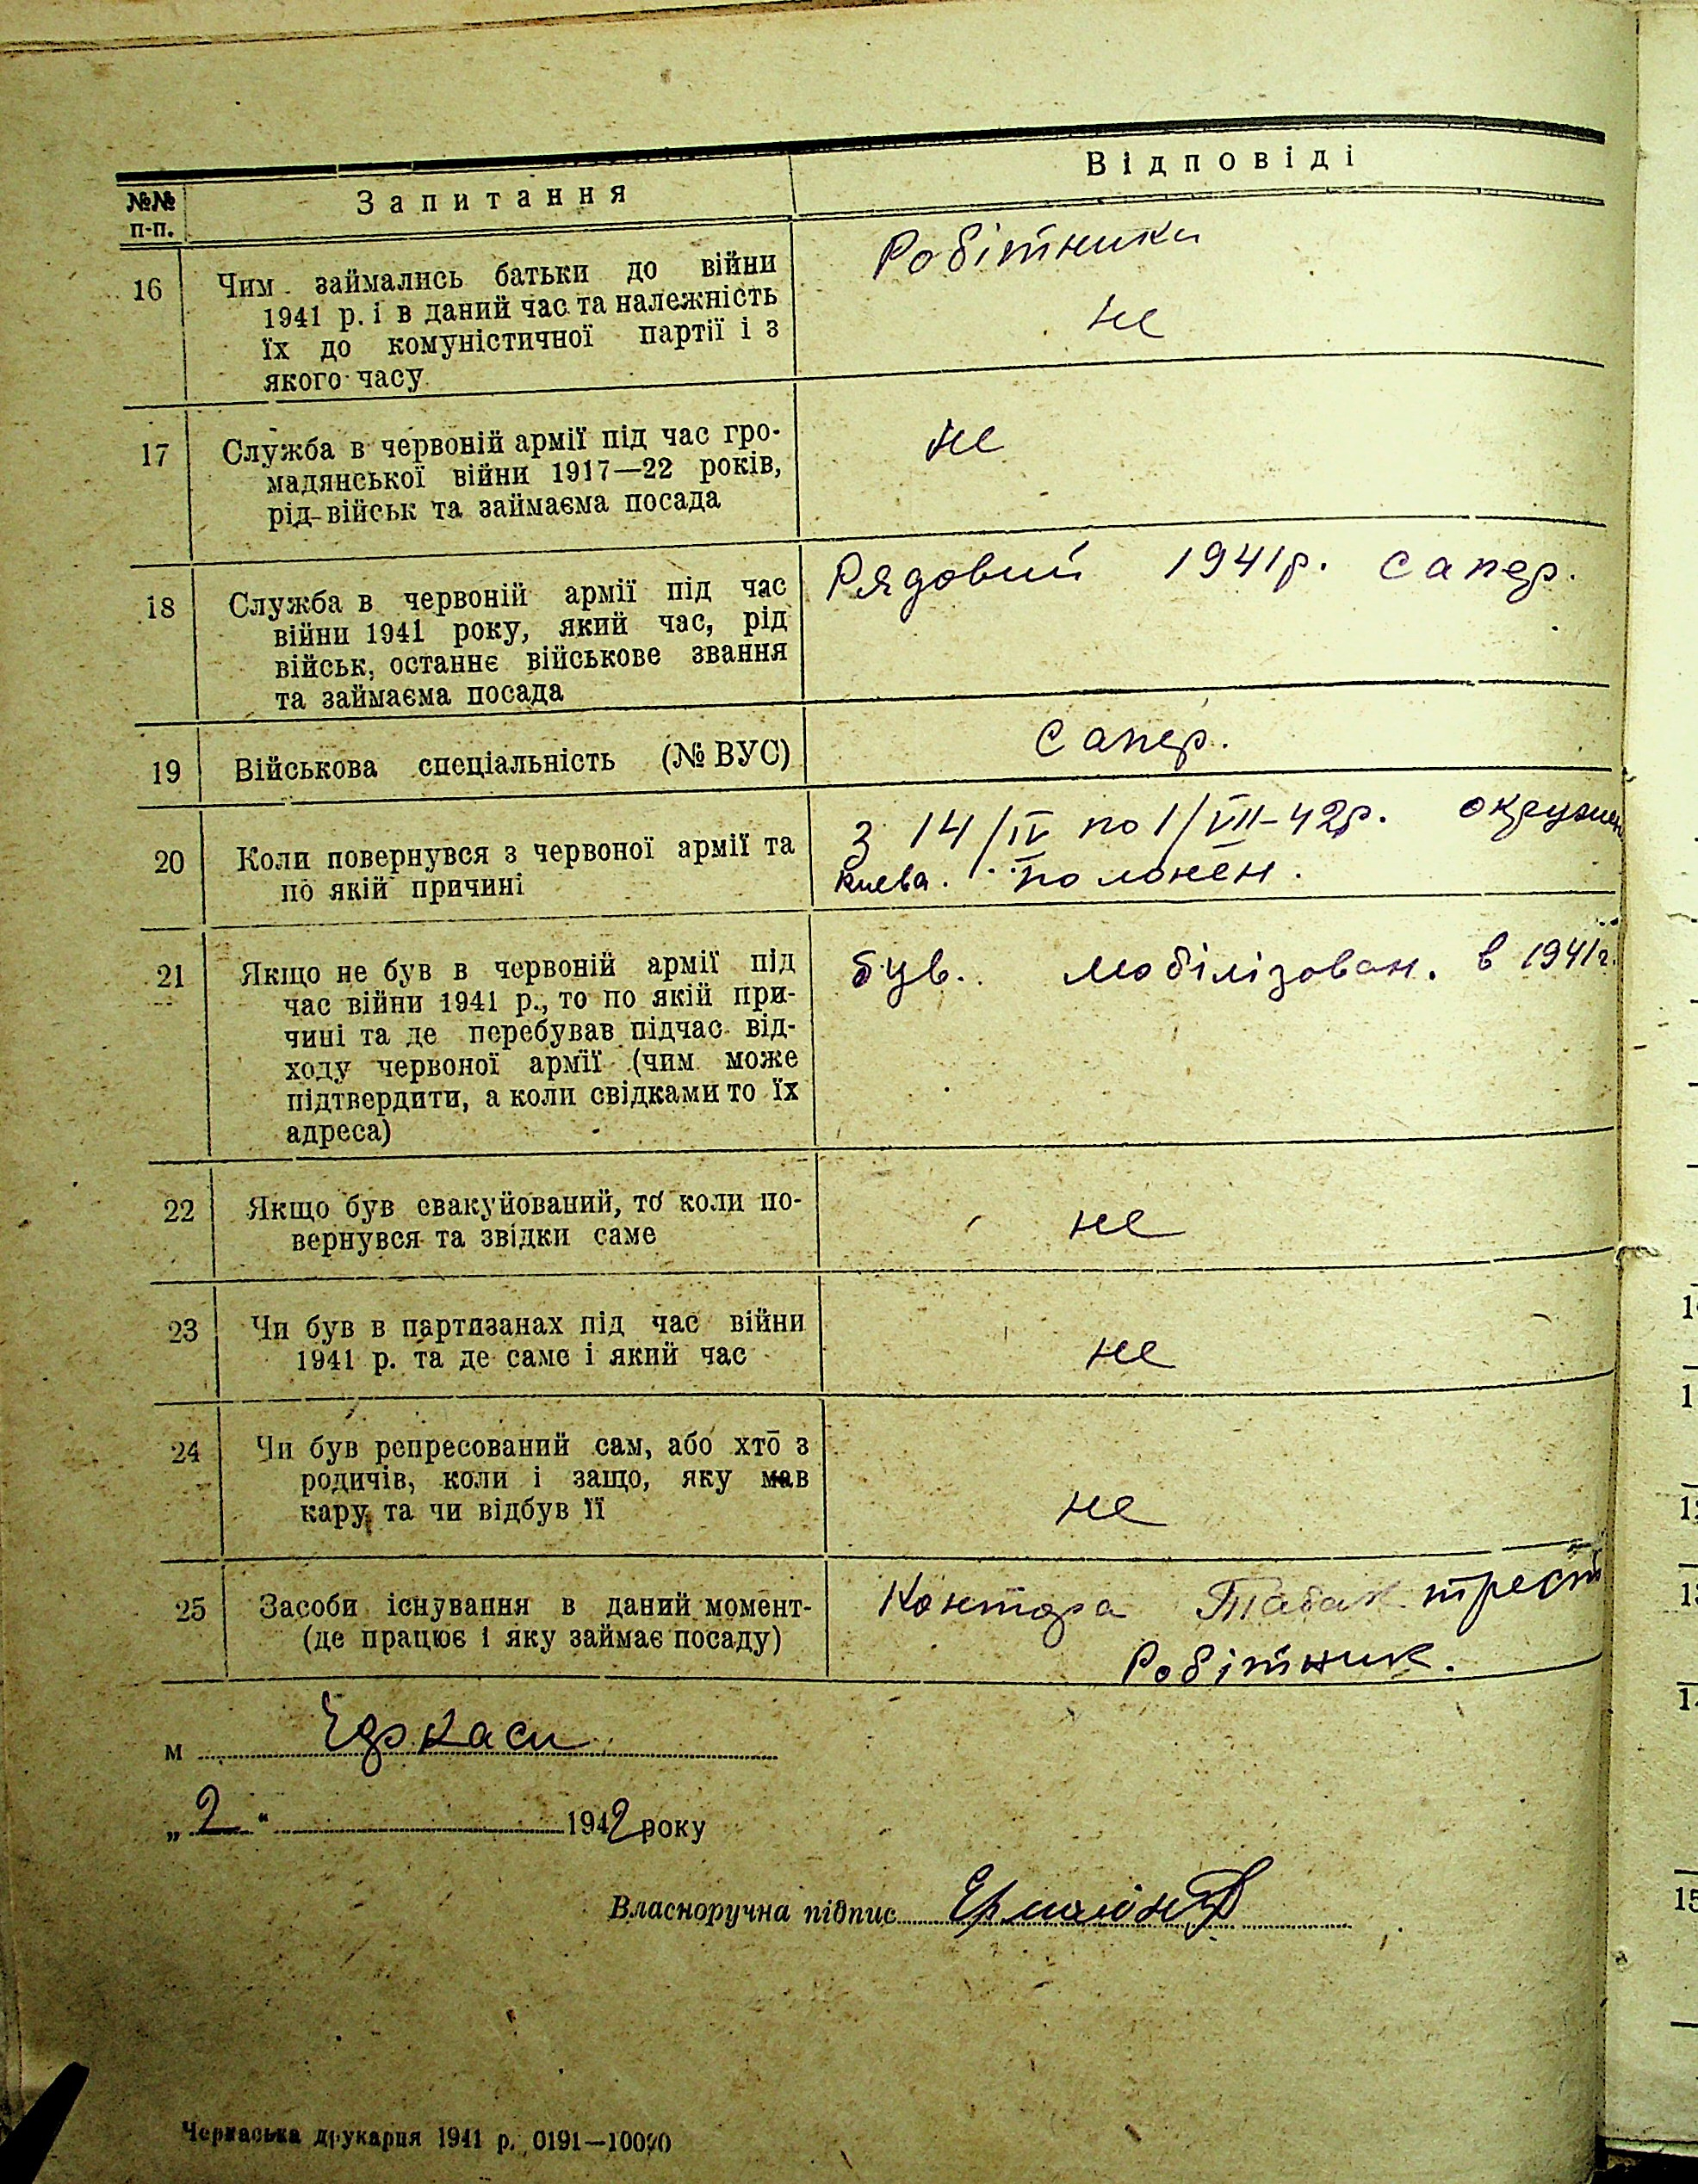 №№ п-п.
Запитання
Відповіді
16
Чим займались батьки до війни
1941 р. і в даний час та належність
їх до комуністичної партії і з
якого часу
Робітники
не
17
Служба в червоній армії під час гро-
мадянської війни 1917—22 років,
рід військ та займаєма посада
не
18
Служба в червоній армії під час
війни 1941 року, який час, рід
військ, останнє військове звання
та займаєма посада
Рядовий 1941р. сапер.
19
Військова спеціальність (№ ВУС)
сапер.
20
Коли повернувся з червоної армії та
по якій причині
З 14/IV по 1/VII-42р.
Киева. полонен.
21
Якщо не був в червоній армії під
час війни 1941 р., то по якій при-
чині та де перебував підчас від-
ходу червоної армії (чим може
підтвердити, а коли свідками то їх
адреса)
був. мобілізован. в 1941г.
22
Якщо був евакуйований, то коли по-
вернувся та звідки саме
не
23
Чи був в партизанах під час війни
1941 р. та де саме і який час
не
24
Чи був репресований сам, або хто з
родичів, коли і защо, яку мав
кару, та чи відбув її
не
25
Засоби існування в даний момент-
(де працює і яку займає посаду)
Контора Табак трест
Робітник.
м Черкаси
„2“ 1942 року
Власноручна підпис
Черкаська друкарня 1941 р. 0191—10000